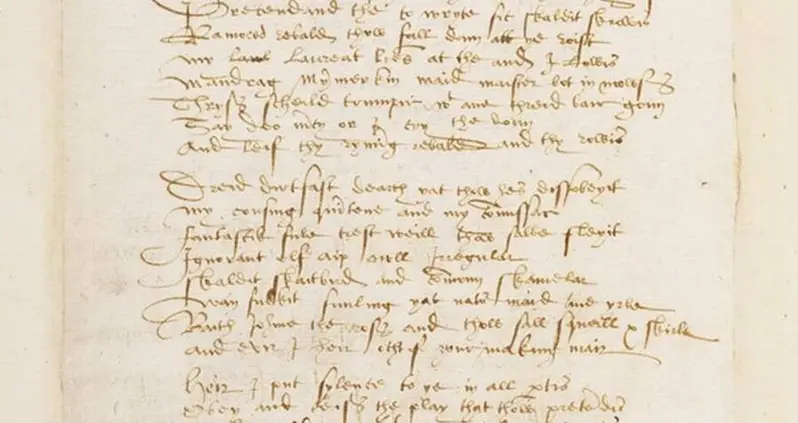 Pretendand the to wryte sic skaldit skrowis
Ramowd rebald thow fall doun att þe roist
my laureat lres at the and I lowis
mandrag mymerkin maid maister bot in mowis
Thrys scheild trumpir wt ane threid bair goun
Say deo mercy or I cry the doun
And leif thy ryming rebald and thy rowis
Dreid dirtfast dearch yat thow hes dissobeyit
my cousing quintene and my comissar
fantastik fule trest weill thow salbe fleyit
Ignorant elf aip owll Irregular
skaldit skaitbird and comoun skamelar
wan fukkit funling yat natur maid ane yrle
Baith Johne the ross and thow sall squeill & skirle
and evir I heir ocht of your making mair
Heir I put sylence to ye in all ptis
Obey and ceis the play that thow pretendis